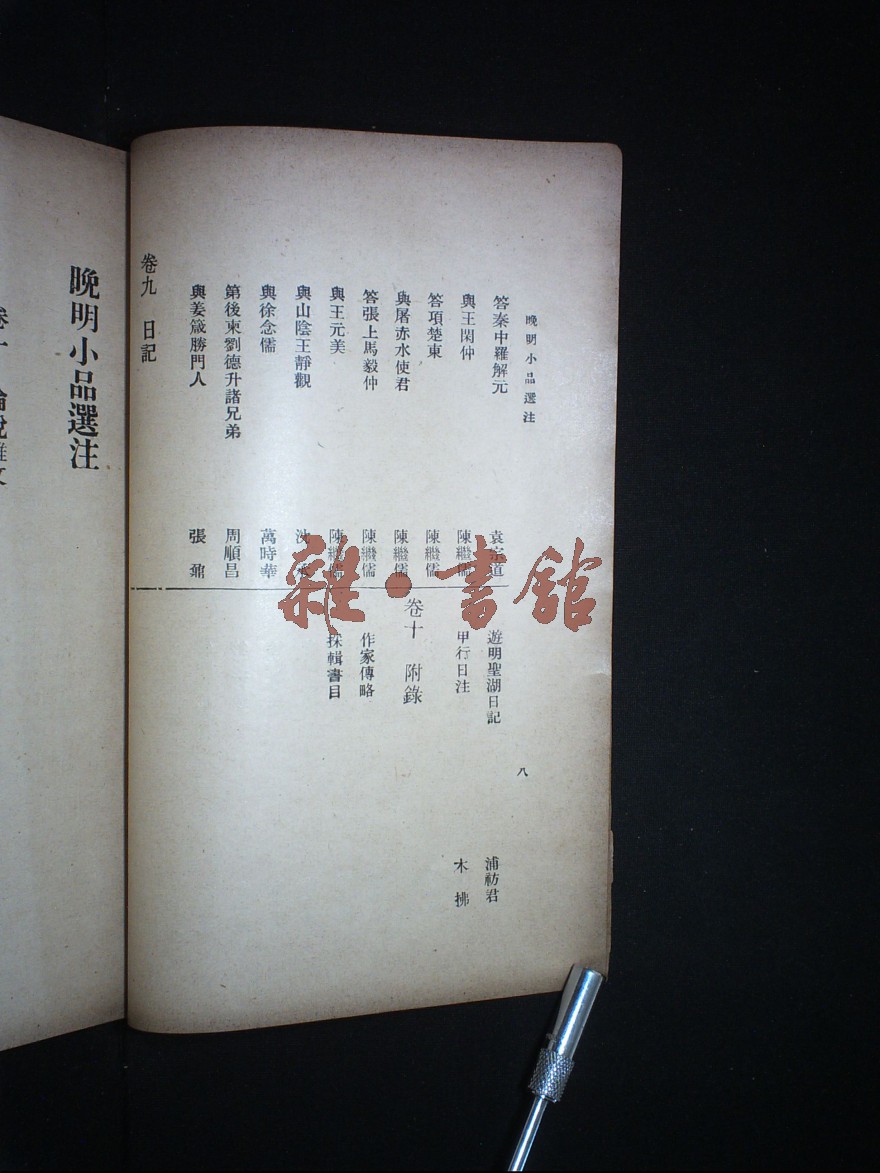 晚明小品選注
答秦中羅解元 袁宗道
與王閑仲 陳繼儒
答項楚東 陳繼儒
與屠赤水使君 陳繼儒
答張上馬毅仲 陳繼儒
與王元美 陳繼儒
與山陰王靜觀
與徐念儒 萬時華
第後柬劉德升諸兄弟 周順昌
與姜箴勝門人 張鼐
卷九 日記
遊明聖湖日記 浦祊君
甲行日注 木拂
卷十 附錄
作家傳略
採輯書目
八
晚明小品選注
雜·書館